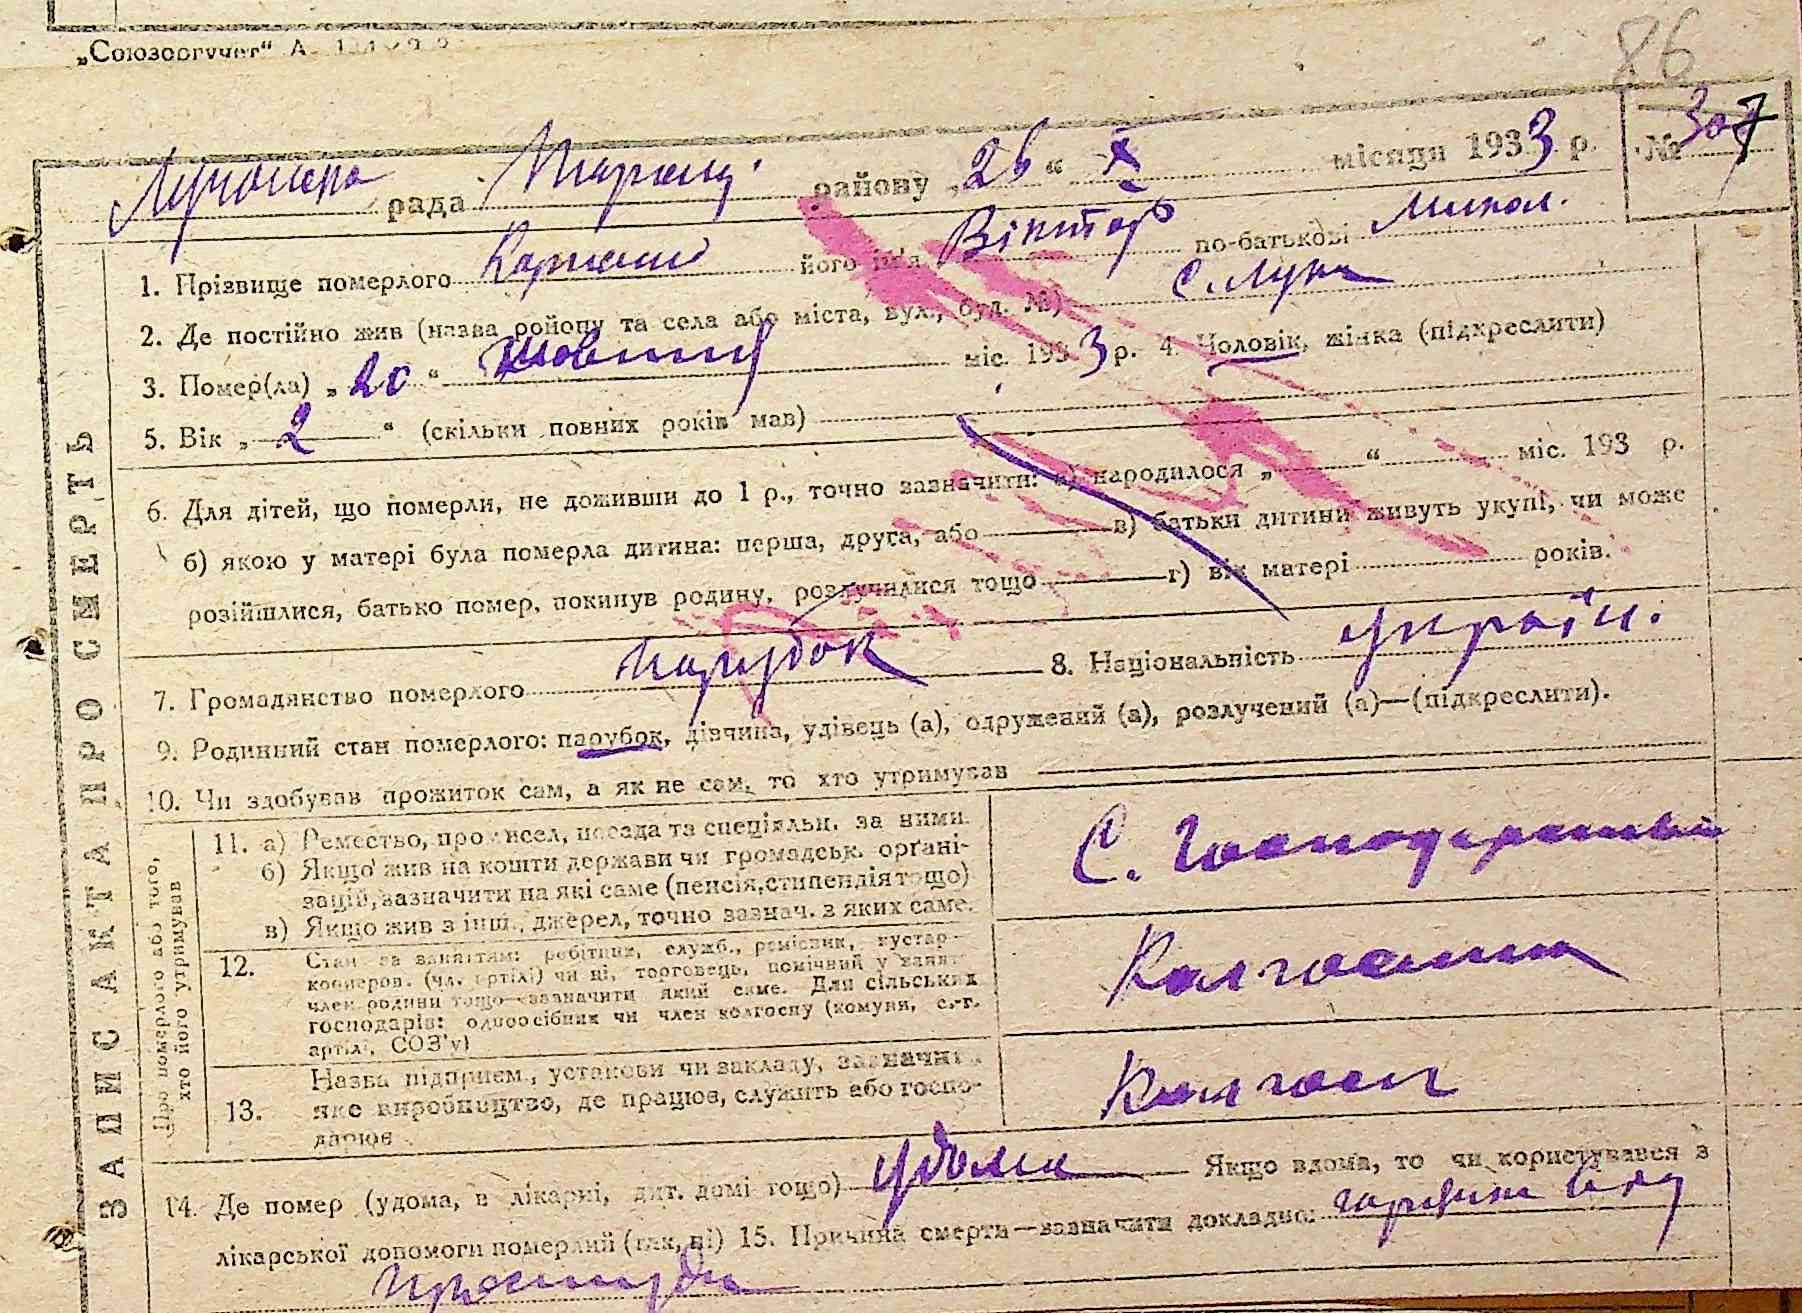 „Союзоргучет“ А.
86
рада Таращ. району „26“ X місяця 1933 р. № 307
1. Прізвище померлого його ім'я Віктор по-батькові Микол.
2. Де постійно жив (назва району та села або міста, вул., буд. №) с. Лука
3. Помер(ла) „20“ Жовтня міс. 1933 р. 4. Чоловік, жінка (підкреслити)
5. Вік „2“ (скільки повних років мав)
6. Для дітей, що померли, не доживши до 1 р., точно зазначити: а) народилося „ “ міс. 193 р.
б) якою у матері була померла дитина: перша, друга, або в) батьки дитини живуть укупі, чи може
розійшлися, батько помер, покинув родину, розлучилися тощо г) вік матері років.
7. Громадянство померлого парубок 8. Національність україн.
9. Родинний стан померлого: парубок, дівчина, удівець (а), одружений (а), розлучений (а)—(підкреслити).
10. Чи здобував прожиток сам, а як не сам, то хто утримував
ЗАПИС АКТА ПРО СМЕРТЬ
Про померлого або того,
хто його утримував
11. а) Ремество, промисел, посада та спеціяльн. за ними.
б) Якщо жив на кошти держави чи громадськ. орґані-
зацій, зазначити на які саме (пенсія, стипендія тощо)
в) Якщо жив з інш. джерел, точно зазнач. з яких саме.
С. Господарство
12. Стан за заняттям: робітник, служб., ремісник, кустар
кооперов. (чл. артілі) чи ні, торговець, помічний у занят.
член родини тощо—зазначити який саме. Для сільських
господарів: одноосібник чи член колгоспу (комуни, с.-г.
артілі, СОЗ'у)
Колгоспник
13. Назва підприєм., установи чи закладу, зазначивши
яке виробництво, де працює, служить або госпо-
дарює
Колгосп
14. Де помер (удома, в лікарні, дит. домі тощо) удома Якщо вдома, то чи користувався з
лікарської допомоги померлий (так, ні) 15. Причина смерти—зазначити докладно: горячка від
простуди